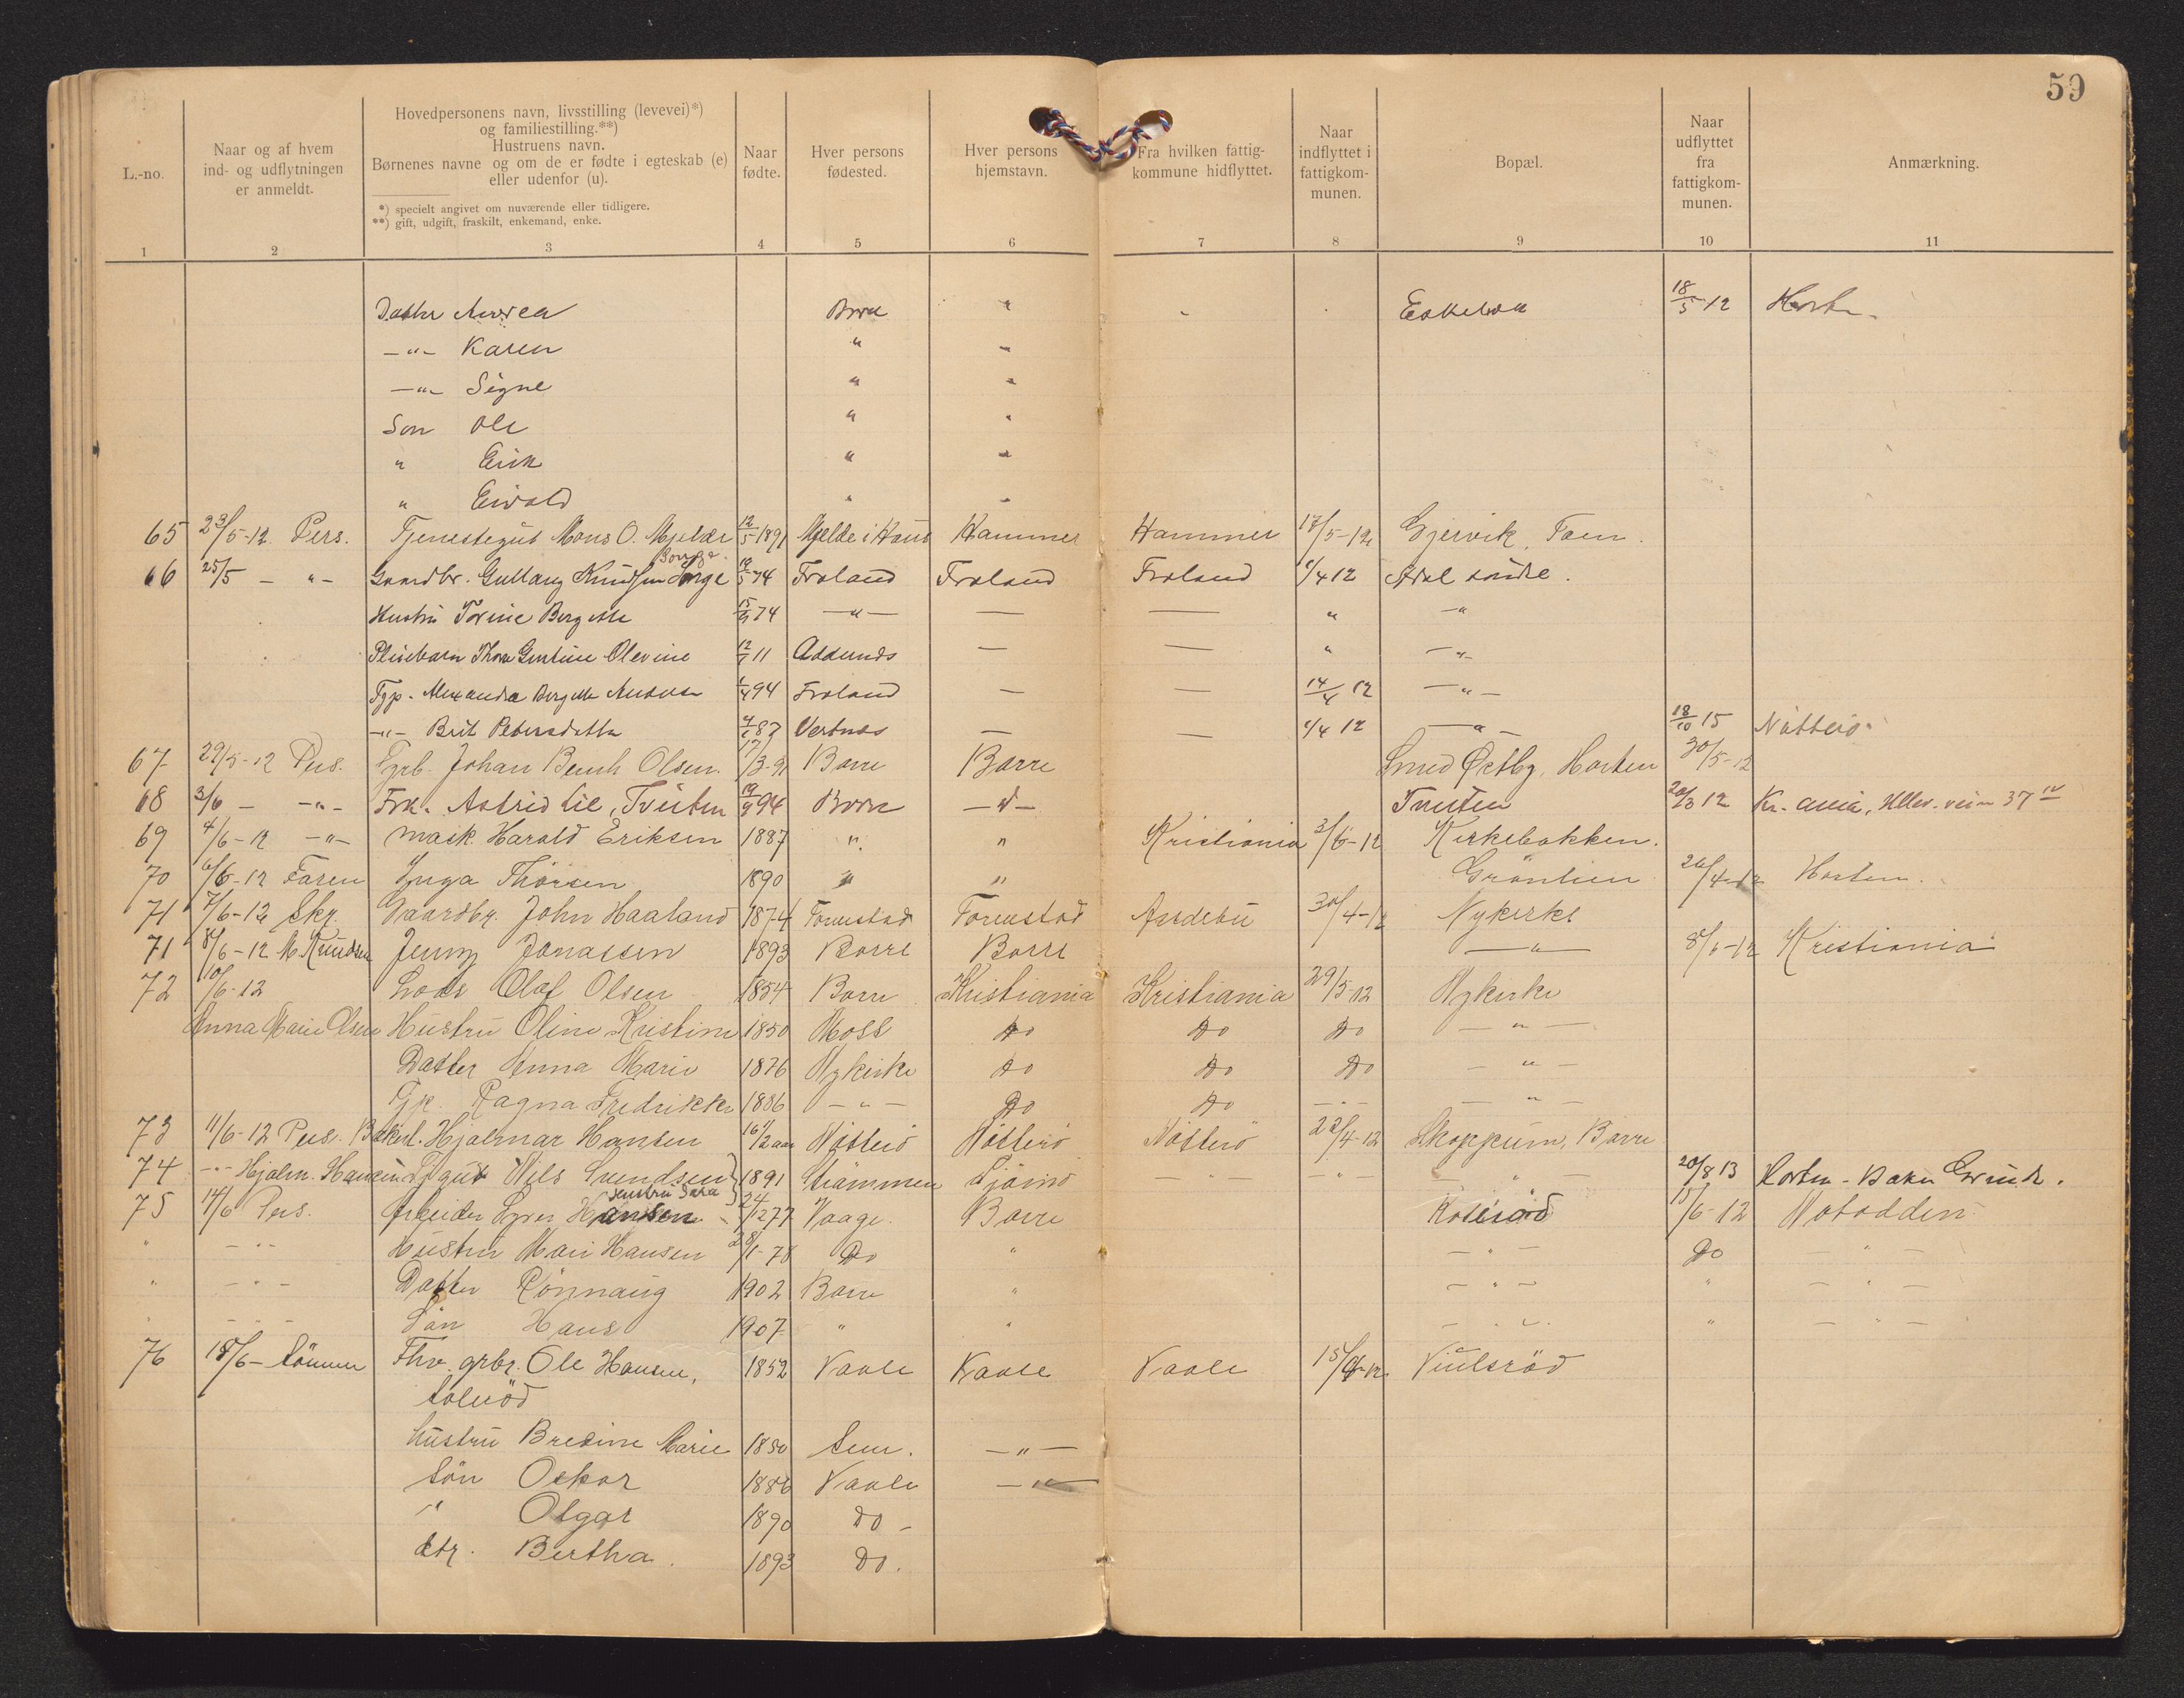 59
L.-no. | Naar og af hvem ind- og udflytningen er anmeldt. | Hovedpersonens navn, livsstilling (levevei)*) og familiestilling.**) Hustruens navn. Børnenes navne og om de er fødte i egteskab (e) eller udenfor (u). | Naar fødte. | Hver persons fødested. | Hver persons hjemstavn. | Fra hvilken fattigkommune hidflyttet. | Naar indflyttet i fattigkommunen. | Bopæl. | Naar udflyttet fra fattigkommunen. | Anmærkning.
*) specielt angivet om nuværende eller tidligere.
**) gift, udgift, fraskilt, enkemand, enke.
1 2 3 4 5 6 7 8 9 10 11
Datter Borre " 18/5-12
-"- Karen "
-"- Signe "
Søn Ole "
" Erik "
" Eivald "
65 23/5-12 Pers. Tjenestegut Mons O. Mjelde 12/5-1891 Mjelde i Haus Hammer Hammer 17/5-12 Gjervik,
66 25/5 - "- Gaardbr. Gullang Knudsen 74 Froland Froland Froland 1/4 12
Hustru Torine Bergitte 74 -"- " -"
Pleiebarn Thora Olevine 11 " -"-
Alexandra Bergitte 94 Froland 14/4 12 -"-
-"- Brit Petersdatter 1/4 12 -"- 18/10 15 Nøtterø
67 29/5-12 Pers. Johan Bernh Olsen. 17/3-91 Borre Borre Smed Østby, Horten 30/5-12
68 3/6 - -"- Frk. Astrid Lie, Tveiten 94 Borre -"- Tveiten 12 Kr.ania,
69 4/6-12 -"- Mask. Harald Eriksen 1887 " " Kristiania 3/6-12 Kirkebakken.
70 6/6-12 Faren Inga Thorsen 1890 " " Grønlien 12 Horten.
71 7/6-12 Skr. Gaardbr. John Haaland 1874 Andebu 30/4-12 Nykirke
71 8/6-12 M Knudsen Jenny Jonassen 1893 Borre Borre -"- 8/6-12 Kristiania
72 10/6-12 Lods Olaf Olsen 1854 Borre Kristiania Kristiania 29/5-12 Nykirke
Anna Marie Olsen Hustru Oline Kristine 1850 Moss Do Do Do -"-
Datter Anna Marie 1876 Nykirke Do Do Do -"-
Tjp. Ragna Fredrikke 1886 -"- Do Do -"- -"-
73 11/6-12 Pers. Hjalmar Hansen 16 1/2 aar Nøtterø Nøtterø Nøtterø 22/4-12 Skoppum, Borre
74 -"- Hjalm. Hansen Nils Svendsen 1891 Strømmen Tjømø -"- -"- -"- 20/8 13 Horten - Baker
75 14/6 Pers. Arbeider Hansen 77 Vaage. Borre 15/6-12 Notodden
" -"- Hustru Mari Hansen 28/1-78 Do " -"- Do -"-
" -"- Datter Rønnaug 1902 Borre " -"- " -"-
" -"- Søn Hans 1907 " " -"- " -"-
76 18/6- Sønnen Fhv. grbr. Ole Hansen, 1852 Vaale Vaale Vaale
Hustru Bredine Marie 1850 Sem. -"-
Søn Oskar 1886 Vaale -"-
" Olgar 1890 Do -
dtr. Bertha. 1893 Do.